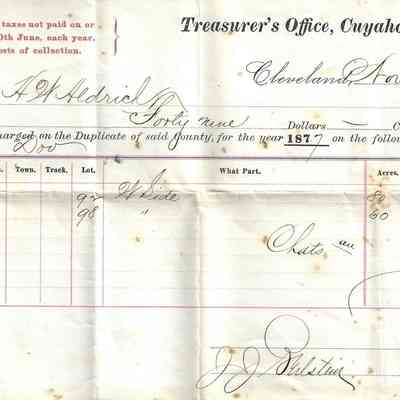 taxes not paid on or
0th June, each year.
osts of collection.
Treasurer's Office, Cuyaho
Cleveland, Nov
H W Aldrich
Forty nine Dollars — C
harged on the Duplicate of said County, for the year 1877 on the follow
Dov
Town. Track. Lot. What Part. Acres.
92 W Side 80
98 " 60
Chats
J. J.